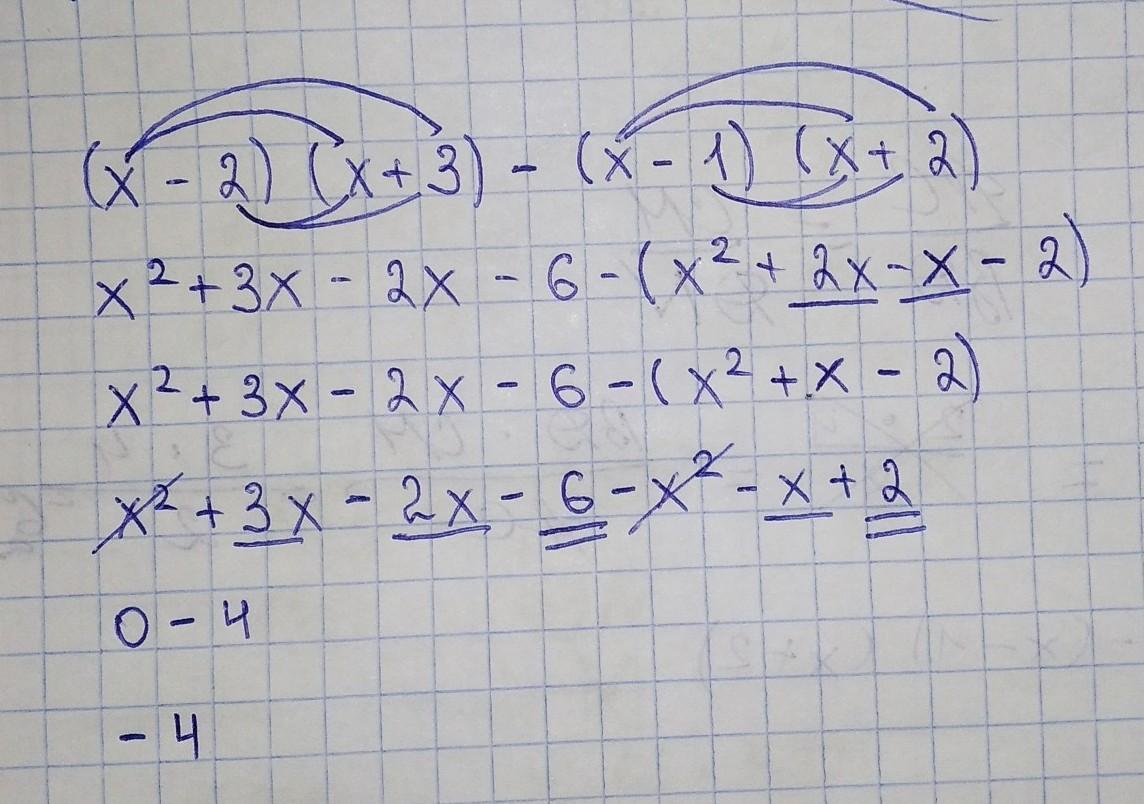 (x - 2) (x + 3) - (x - 1) (x + 2)
x² + 3x - 2x - 6 - (x² + 2x - x - 2)
x² + 3x - 2x - 6 - (x² + x - 2)
x² + 3x - 2x - 6 - x² - x + 2
0 - 4
- 4